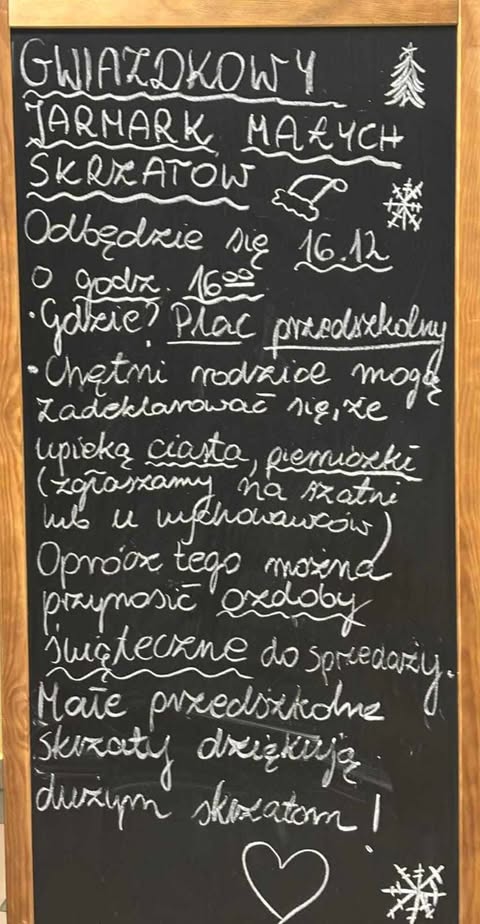 GWIAZDKOWY
JARMARK MAŁYCH
SKRZATÓW
Odbędzie się 16.12
o godz. 16⁰⁰
• Gdzie? Plac przedszkolny
• Chętni rodzice mogą
zadeklarować się, że
upieką ciasta, pierniczki
(zgłaszamy na szatni
lub u wychowawców)
Oprócz tego można
przynosić ozdoby
świąteczne do sprzedaży.
Małe przedszkolne
skrzaty dziękują
dużym skrzatom!